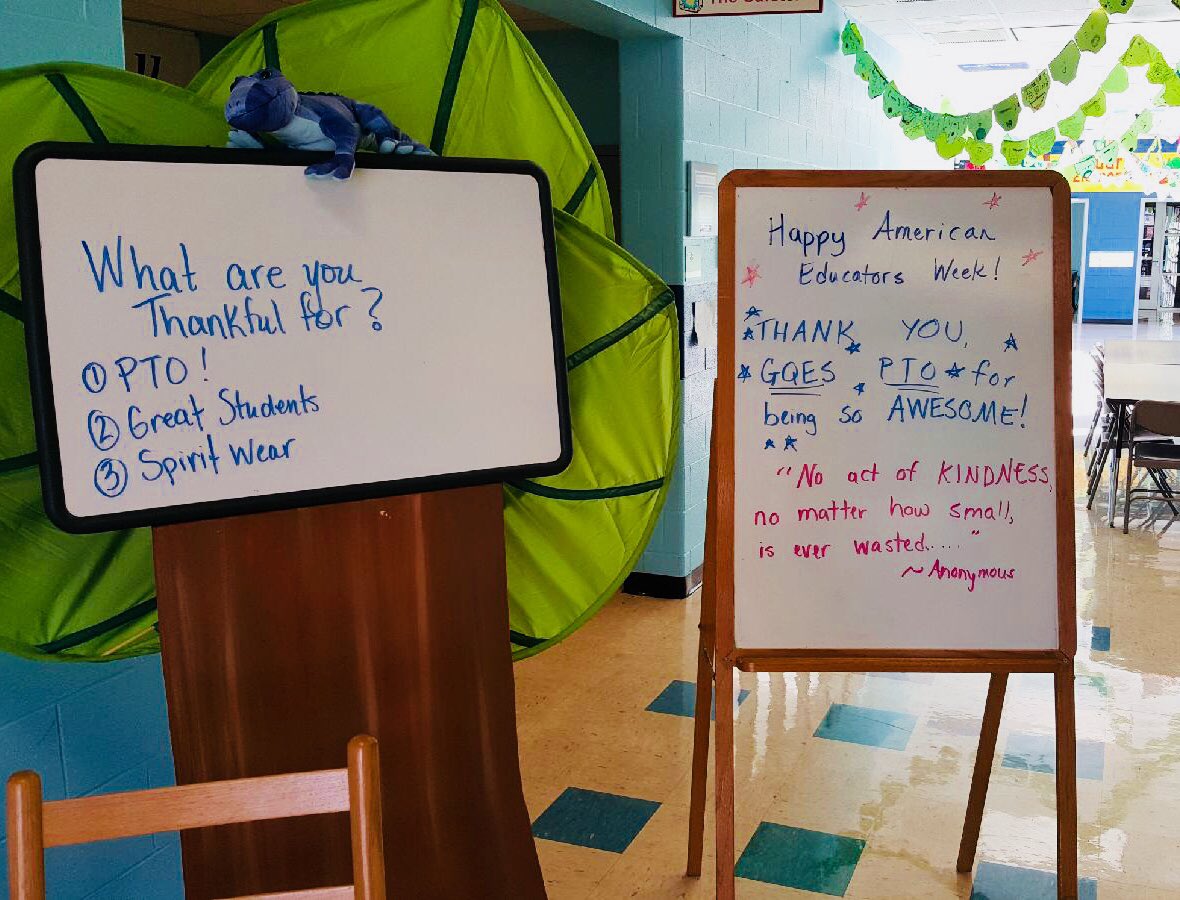 What are you
Thankful for?
① PTO!
② Great Students
③ Spirit Wear
Happy American
Educators Week!
THANK YOU,
GQES PTO for
being so AWESOME!
"No act of KINDNESS,
no matter how small,
is ever wasted....."
~ Anonymous